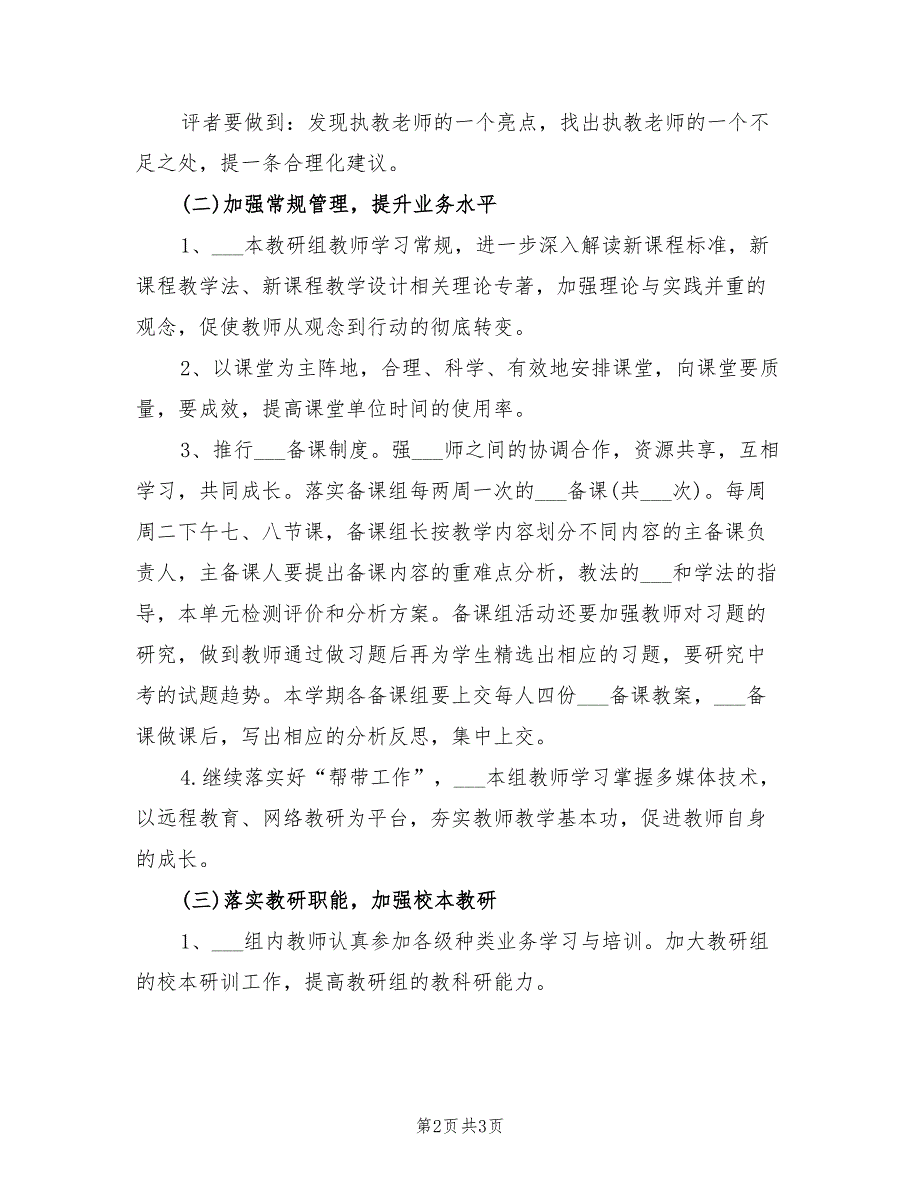 评者要做到：发现执教老师的一个亮点，找出执教老师的一个不
足之处，提一条合理化建议。
(二)加强常规管理，提升业务水平
1、___本教研组教师学习常规，进一步深入解读新课程标准，新
课程教学法、新课程教学设计相关理论专著，加强理论与实践并重的
观念，促使教师从观念到行动的彻底转变。
2、以课堂为主阵地，合理、科学、有效地安排课堂，向课堂要质
量，要成效，提高课堂单位时间的使用率。
3、推行___备课制度。强___师之间的协调合作，资源共享，互相
学习，共同成长。落实备课组每两周一次的___备课(共___次)。每周
周二下午七、八节课，备课组长按教学内容划分不同内容的主备课负
责人，主备课人要提出备课内容的重难点分析，教法的___和学法的指
导，本单元检测评价和分析方案。备课组活动还要加强教师对习题的
研究，做到教师通过做习题后再为学生精选出相应的习题，要研究中
考的试题趋势。本学期各备课组要上交每人四份___备课教案，___备
课做课后，写出相应的分析反思，集中上交。
4.继续落实好“帮带工作”，___本组教师学习掌握多媒体技术，
以远程教育、网络教研为平台，夯实教师教学基本功，促进教师自身
的成长。
(三)落实教研职能，加强校本教研
1、___组内教师认真参加各级种类业务学习与培训。加大教研组
的校本研训工作，提高教研组的教科研能力。
第2页共3页